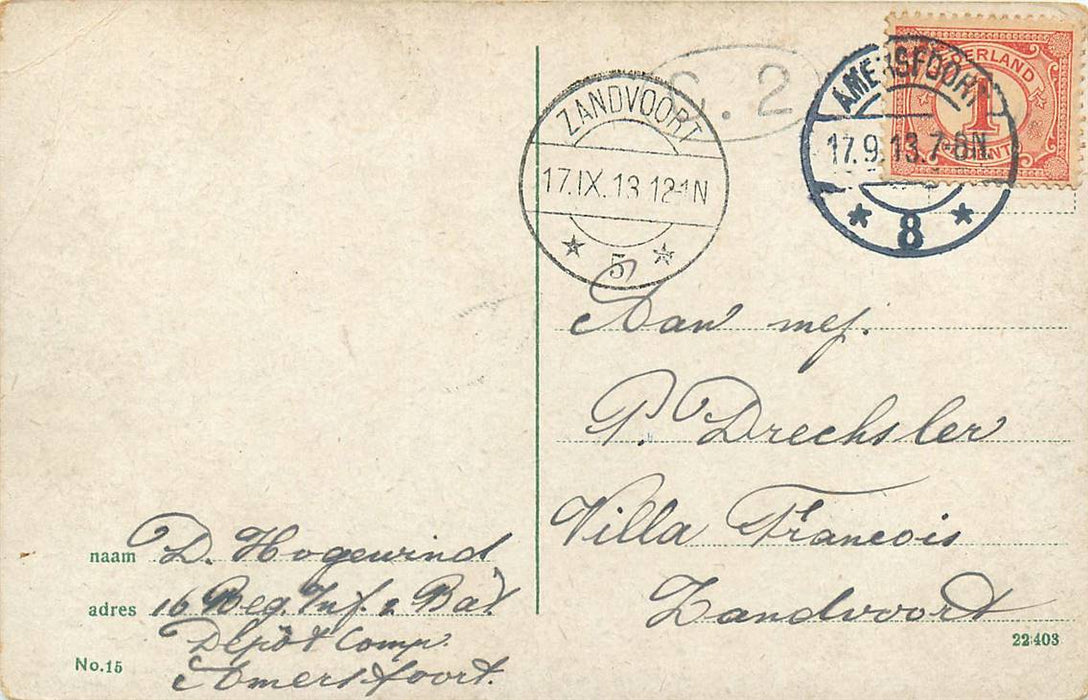 S. 2
ZANDVOORT
17.IX.13 12-1N
5
AMERSFOORT
17.9.13.7-8N.
8
NEDERLAND
1
CENT
Aan mej.
P. Drechsler
Villa Francois
Zandvoort
naam D. Hogewind
adres 16 Reg. Inf. 2 Bat
Depôt Comp.
No.15 Amersfoort.
22403